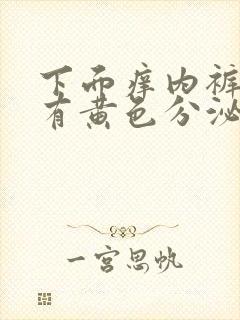 下面痒内裤
有黄色分泌
一宫思帆